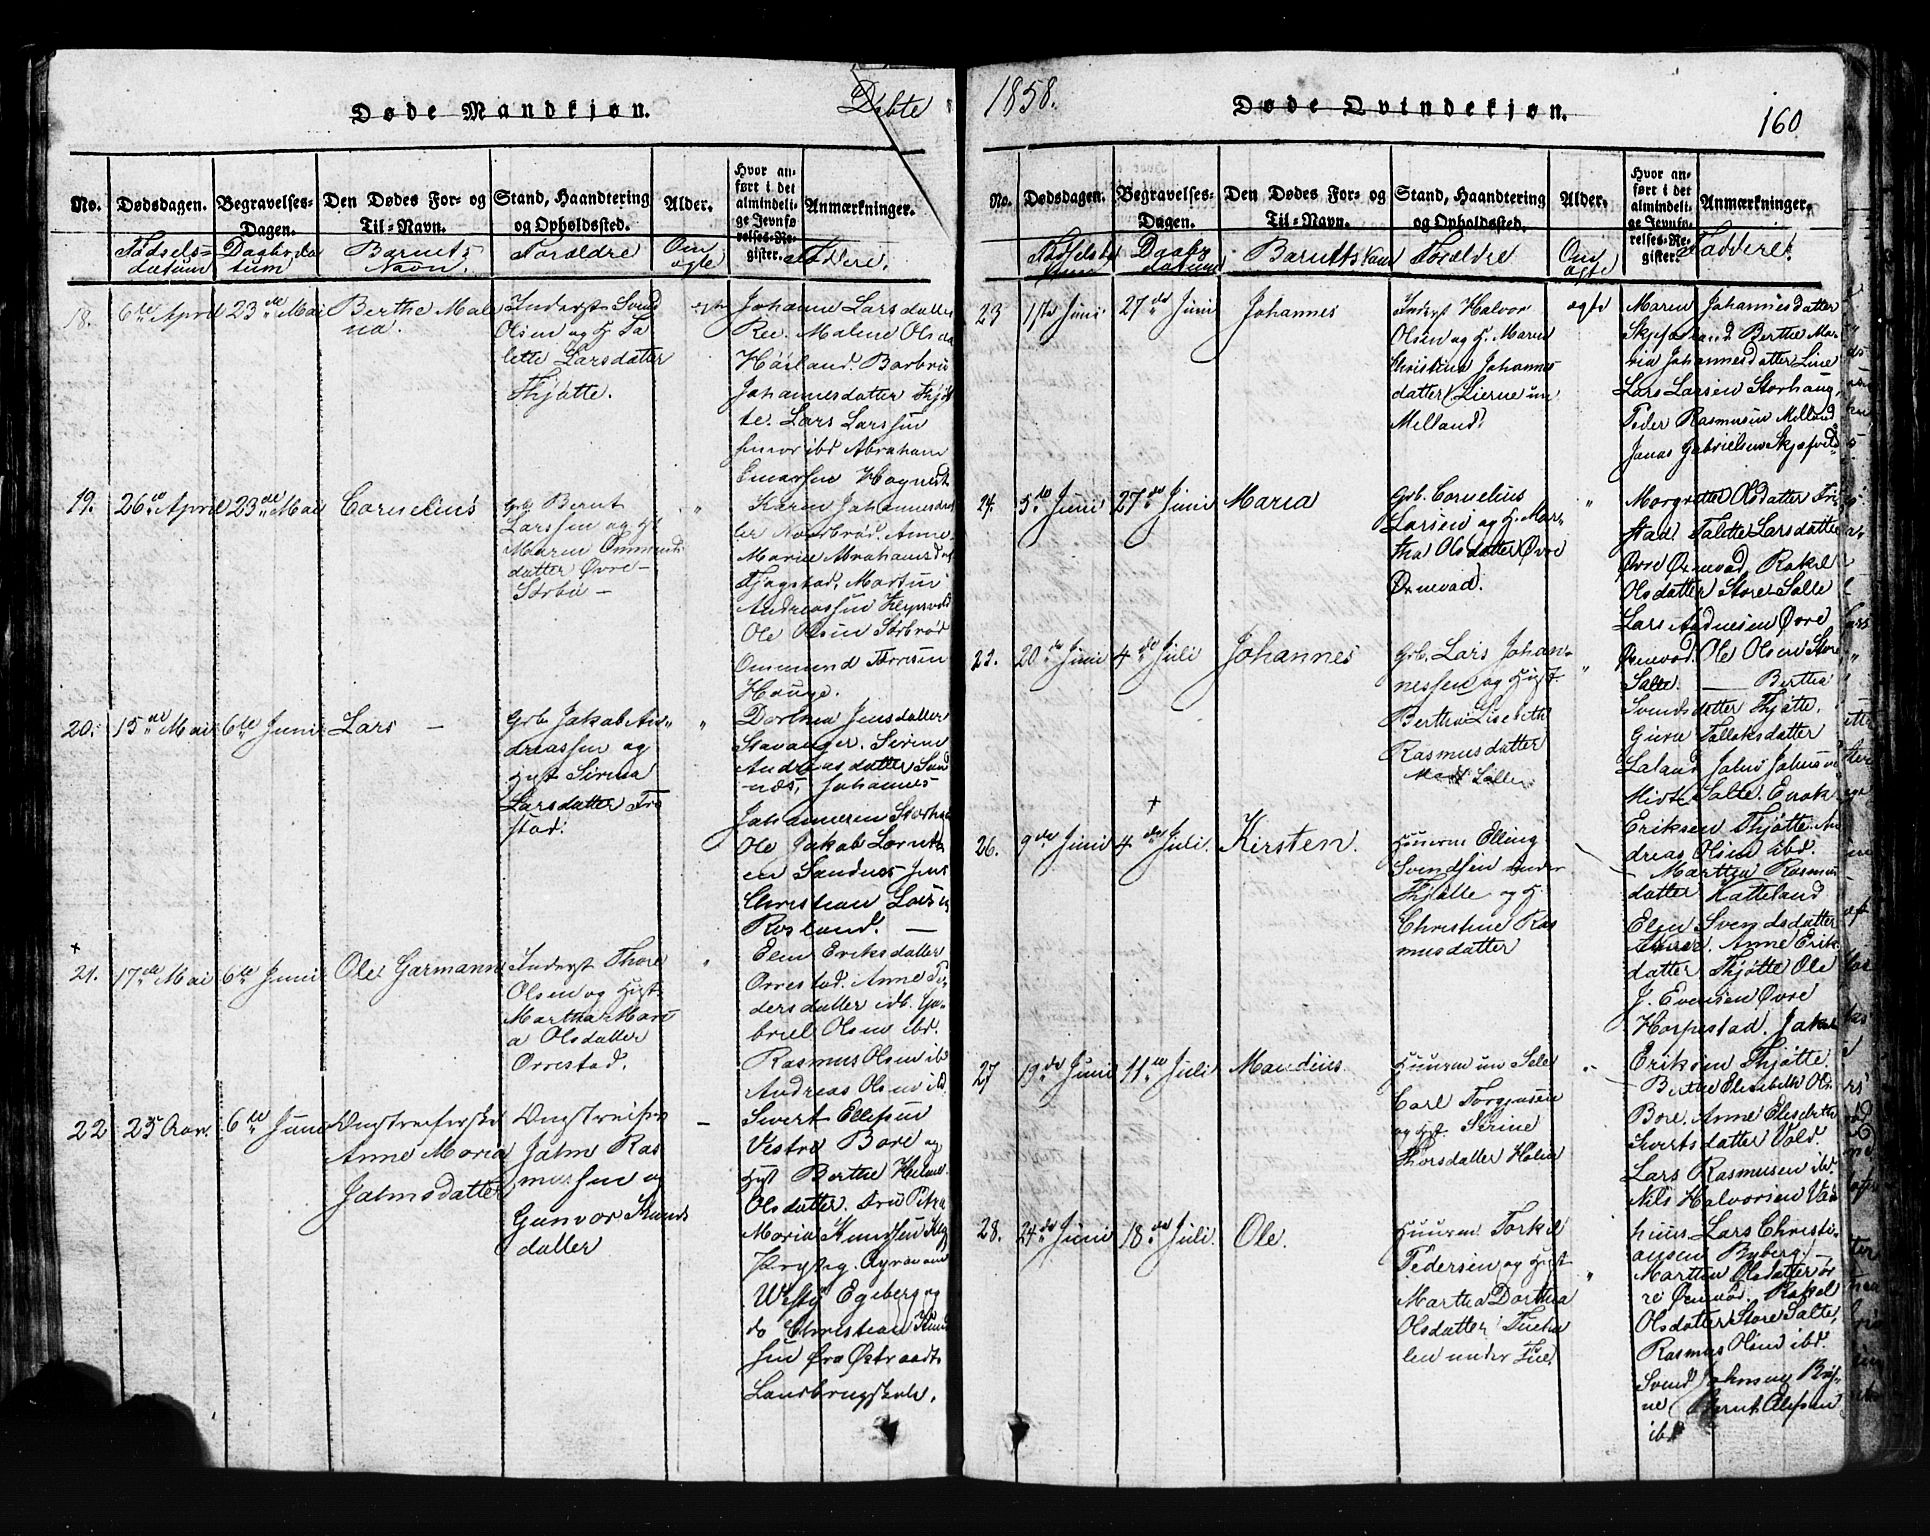 Døde Mandkjøn.
Døbte
No.
Dødsdagen.
Begravelses-
Dagen.
Den Dødes For- og
Til-Navn.
Stand, Haandtering
og Opholdssted.
Alder.
Hvor an-
ført i det
almindeli-
ge Jevnfø
relses-Re-
gister.
Anmærkninger.
Fødsels-
datum
Daabsda
tum
Barnets
Navn
Forældre
Om
ægte
Faddere.
18.
6te April
23de Mai
Bertha Mal
na.
Inderst Svend
Olsen og H. Ta
lette Larsdatter
Thjøtte.
Johanne Larsdatter
Ree. Malene Olsda
Høiland. Barbro
Johannesdatter Thjøt
te. Lars Larssen
ibd Abrahem
19.
26de April
23de Mai
Cornelius
Grb Bernt
Larssen og H
Maren Ommunds
datter Øvre-
Sørbø -
"
Karen Johannesdat
ter Nordbrød. Anne
Marine Abrahamsdat
Martin
Andreassen Klepsvold
Ole Olsen Sørbrød
Ommund Torresen
Hauge.
20.
15de Mai
6te Juni
Lars -
Grb Jakob An-
dreassen og
Hust Sirena
Larsdatter Fri
stad.
"
Dorthea Jensdatter
Stavanger. Serine
Andreasdatter Sand
næs, Johannes
Johannesen Storhau
Ole Jakob Lorents
en Sandnes Jens
Christian Lars
Rosland. -
+
21.
17de Mai
6te Juni
Ole Garmann
Inderst Thore
Olsen og Hust
Martha Mari
a Olsdatter
Orrestad.
"
Elen Eriksdatter
Orrestad. Anne Pe
dersdatter ibd. Ga-
briel Olsen ibd.
Rasmus Olsen ib
Andreas Olsen ib
22
25 Aar.
6te Juni
Anne Maria
Jalmsdatter
Jalm Ras
mussen og
Gunvor Knuds
datter
-
Sivert Ellefsen
Vestre Bore og
Hust Berthe Helene
Olsdatter. Petra
Maria Knudsen
Egeberg og
do Christian Knud
sen fra Østraadt
Landbrugskole.
1858.
Døde Qvindekjøn.
160
No.
Dødsdagen.
Begravelses-
Dagen.
Den Dødes For- og
Til-Navn.
Stand, Haandtering
og Opholdssted.
Alder.
Hvor an-
ført i det
almindeli-
ge Jevnfø
relses-Re-
gister.
Anmærkninger.
Daabs
datum
Barnets Navn
Forældre
Om
ægte
Faddere.
23
1ste Juni
27de Juni
Johannes
Inderst Halvor
Olsen og H. Maren
Christina Johannes
datter Lierne un
Melland.
ægte
Maren Johannesdatter
Skjefveland Berthe Ma-
ria Johannesdatter Line
Lars Larsen Storhaug,
Peder Rasmusen Melland
Jonas Gabrielsen Skjefvela
24.
5te Juni
27de Juni
Maria
Grb. Cornelius
Larsen og H. Mar-
tha Olsdatter Øvre
Øxnevad.
"
Margrethe Olsdatter Fri-
stad Talette Larsdatter
Øvre Øxnevad, Rakel
Olsdatter Store Salte
Lars Andresen Øvre
Øxnevad. Ole Olsen Store
Salte.
20de Juni
4de Juli
Johannes
Grb. Lars Johan-
nessen og Hust.
Bertha Lisebeth
Rasmusdatter
Salte
"
Bertha
Svendsdatter Thjøtte,
Guro Tollaksdatter
Laland
Salte. Enok
Eriksen Thjøtte. An
dreas Olsen ibd.
+
26.
9de Juni
4de Juli.
Kirsten.
Huusm Elling
Svendsen under
Thjøtte og H.
Christine Ras
musdatter
- Marthja Rasmus
datter Katteland
Elen Svendsdatter
Anne Erik
datter Thjøtte Ole
J. Evensen Øvre
Horpestad. Jakob
Eriksen Thjøtte
27
19de Juni
11te Juli
Mandius.
Huusm un Sele
Carl Torgersen
og Hust. Serine
Thorsdatter Holen
Berthe Elisebeth Ols
Bore. Anne Elisebeth
Sivertsdatter Vold.
Lars Rasmusen ibd.
Nils Halvorsen Vas
huus Lars Christi-
ansen Byberg. -
28.
24de Juni
18de Juli.
Ole.
Huusm Torkel
Pedersen og Hust
Martha Dorthea
Olsdatter Tueha
len under Tue
"
Marthea Olsdatter Øv
re Øxnevad. Rakel
Olsdatter Store Salte,
Rasmus Olsen ibd.
Svend
Bernt Olefsen
ibd